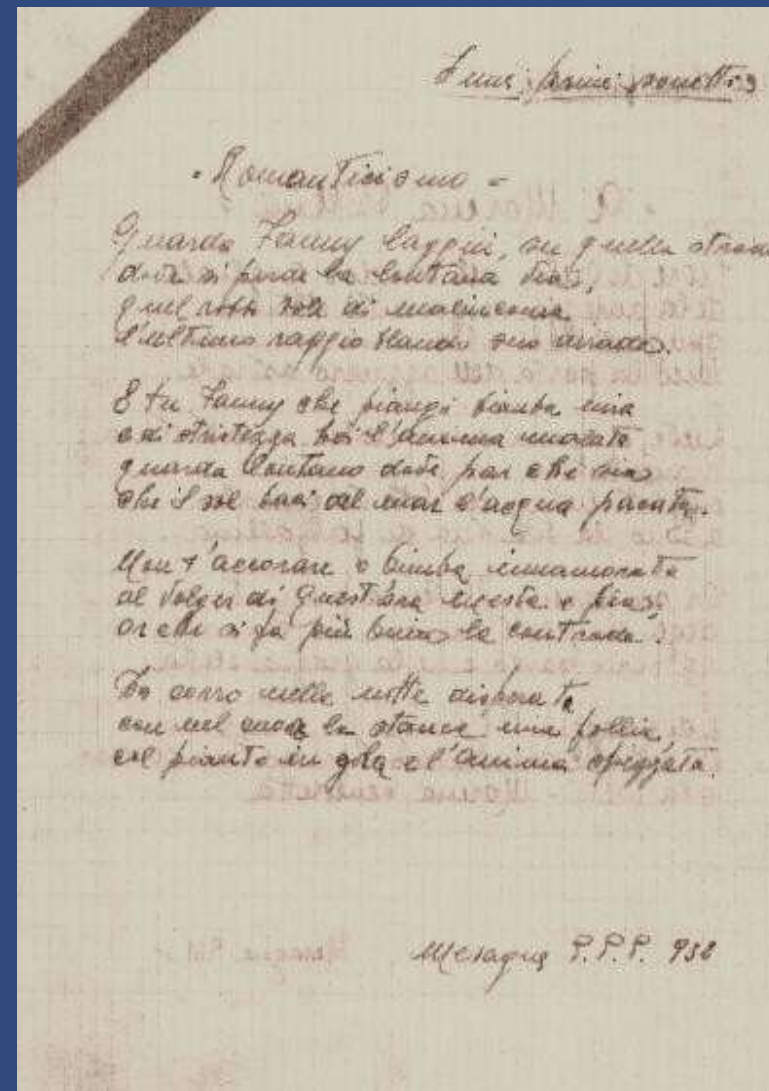 I miei primi sonetti
- Romanticismo -
Guarda Fanny laggiù, su quella strada
dove si perde la lontana via,
quel rosso sole di malinconia
l'ultimo raggio blando suo dirada.
E tu Fanny che piangi bimba mia
e di tristezza hai l'anima
guarda lontano dove par che sia
che il sole baci del mar l'acqua pacata.
Non t'accorare o bimba innamorata
al volger di quest'ora mesta e pia,
or che si fa più buia la contrada.
Io corro nella notte disperata
con nel cuore la stanca mia follia,
col pianto in gola e l'anima spezzata.
Mesagne P.P.P. 938